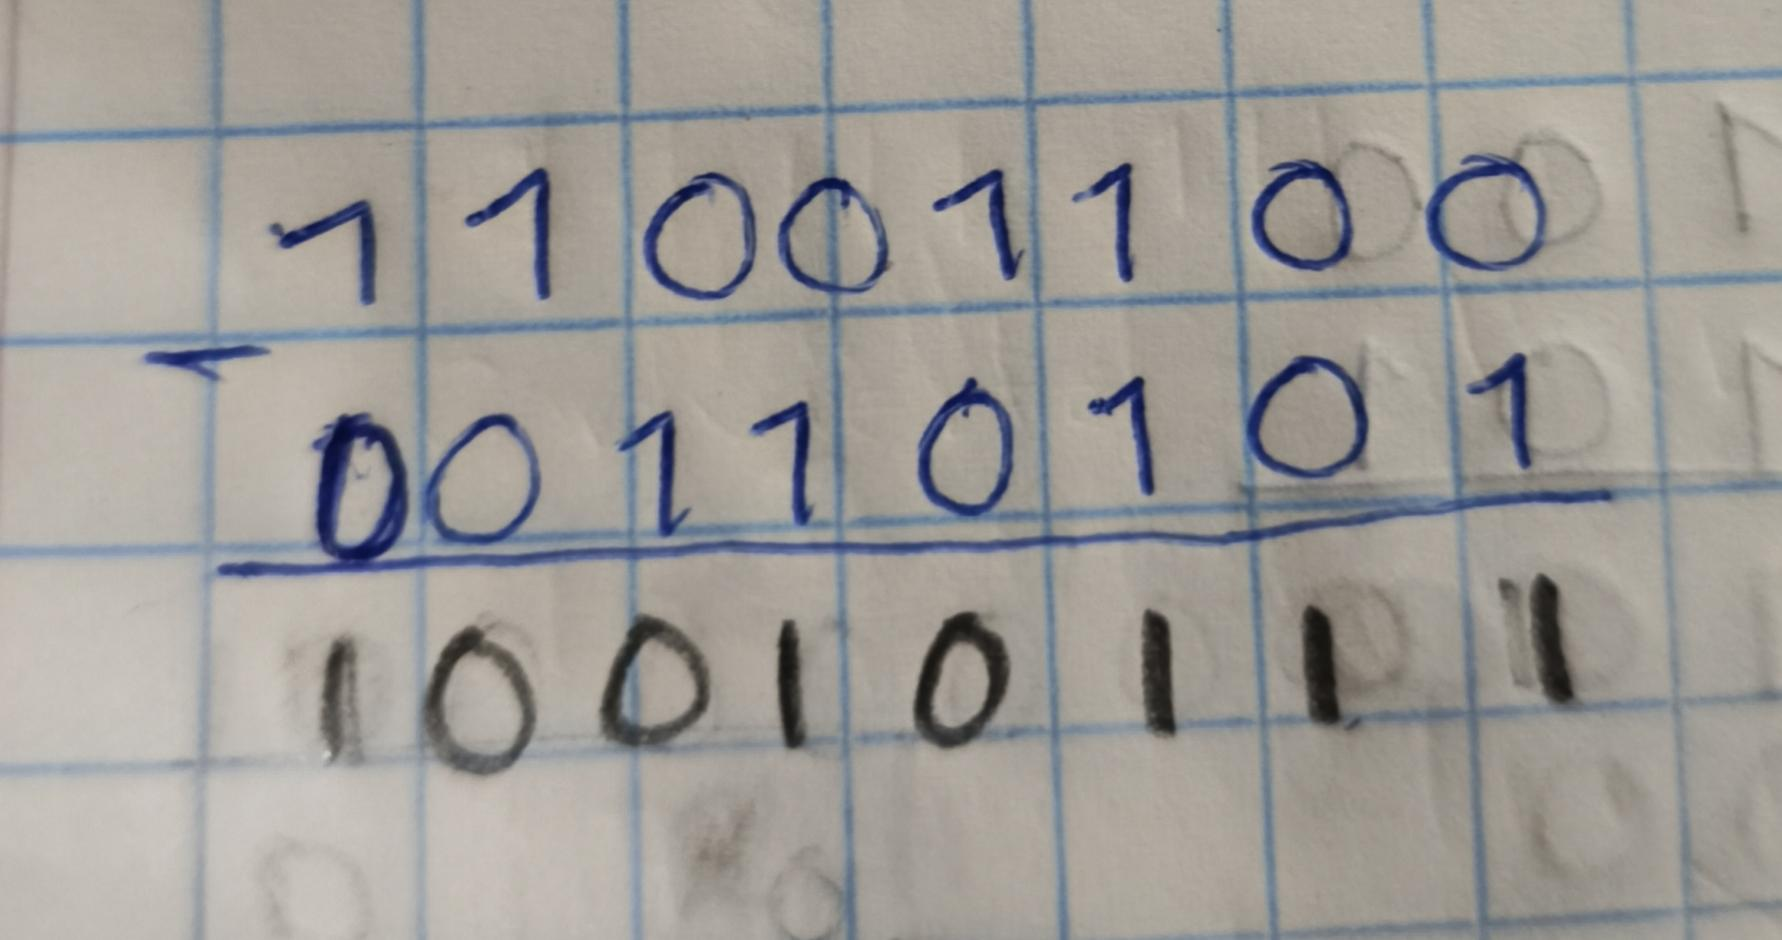 11001100
-
00110101
10010111